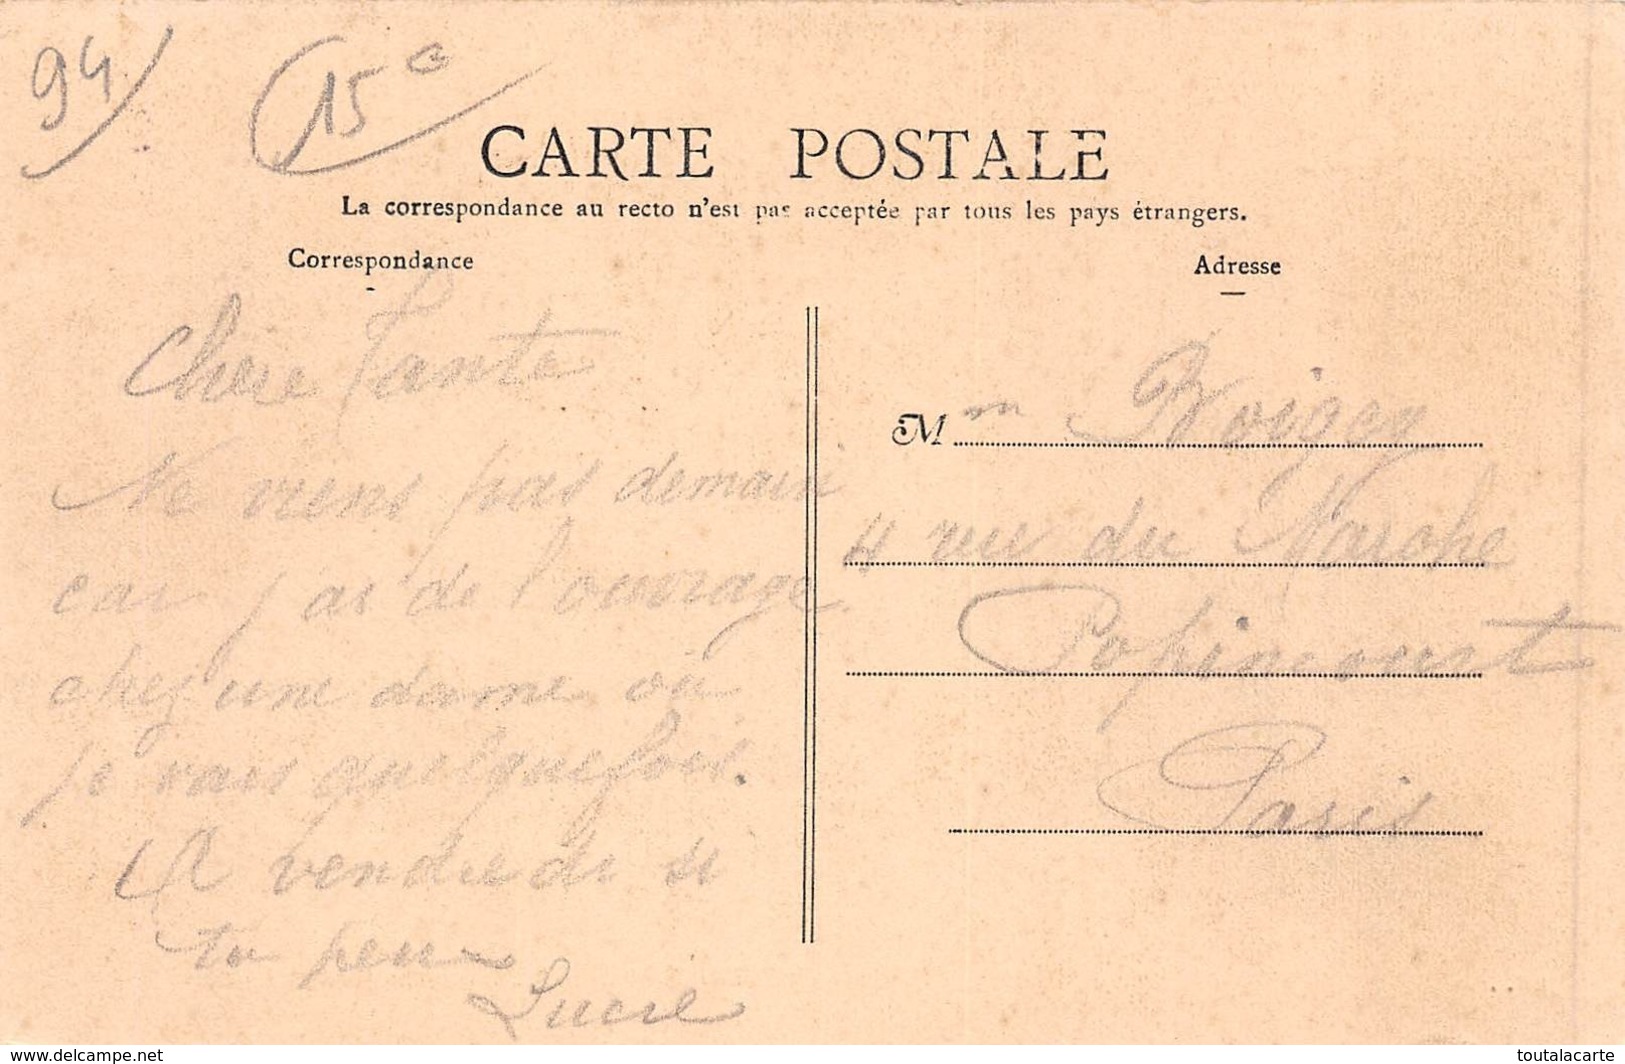 94
15 c
CARTE POSTALE
La correspondance au recto n'est pas acceptée par tous les pays étrangers.
Correspondance
Adresse
Chère Tante
Ne viens pas demain
car j'ai de l'ouvrage
chez une dame où
je vais quelquefois.
A vendredi si
tu peu
Lucie
M m Boigey
4 rue du Marche
Popincourt
Paris
www.delcampe.net
toutalacarte